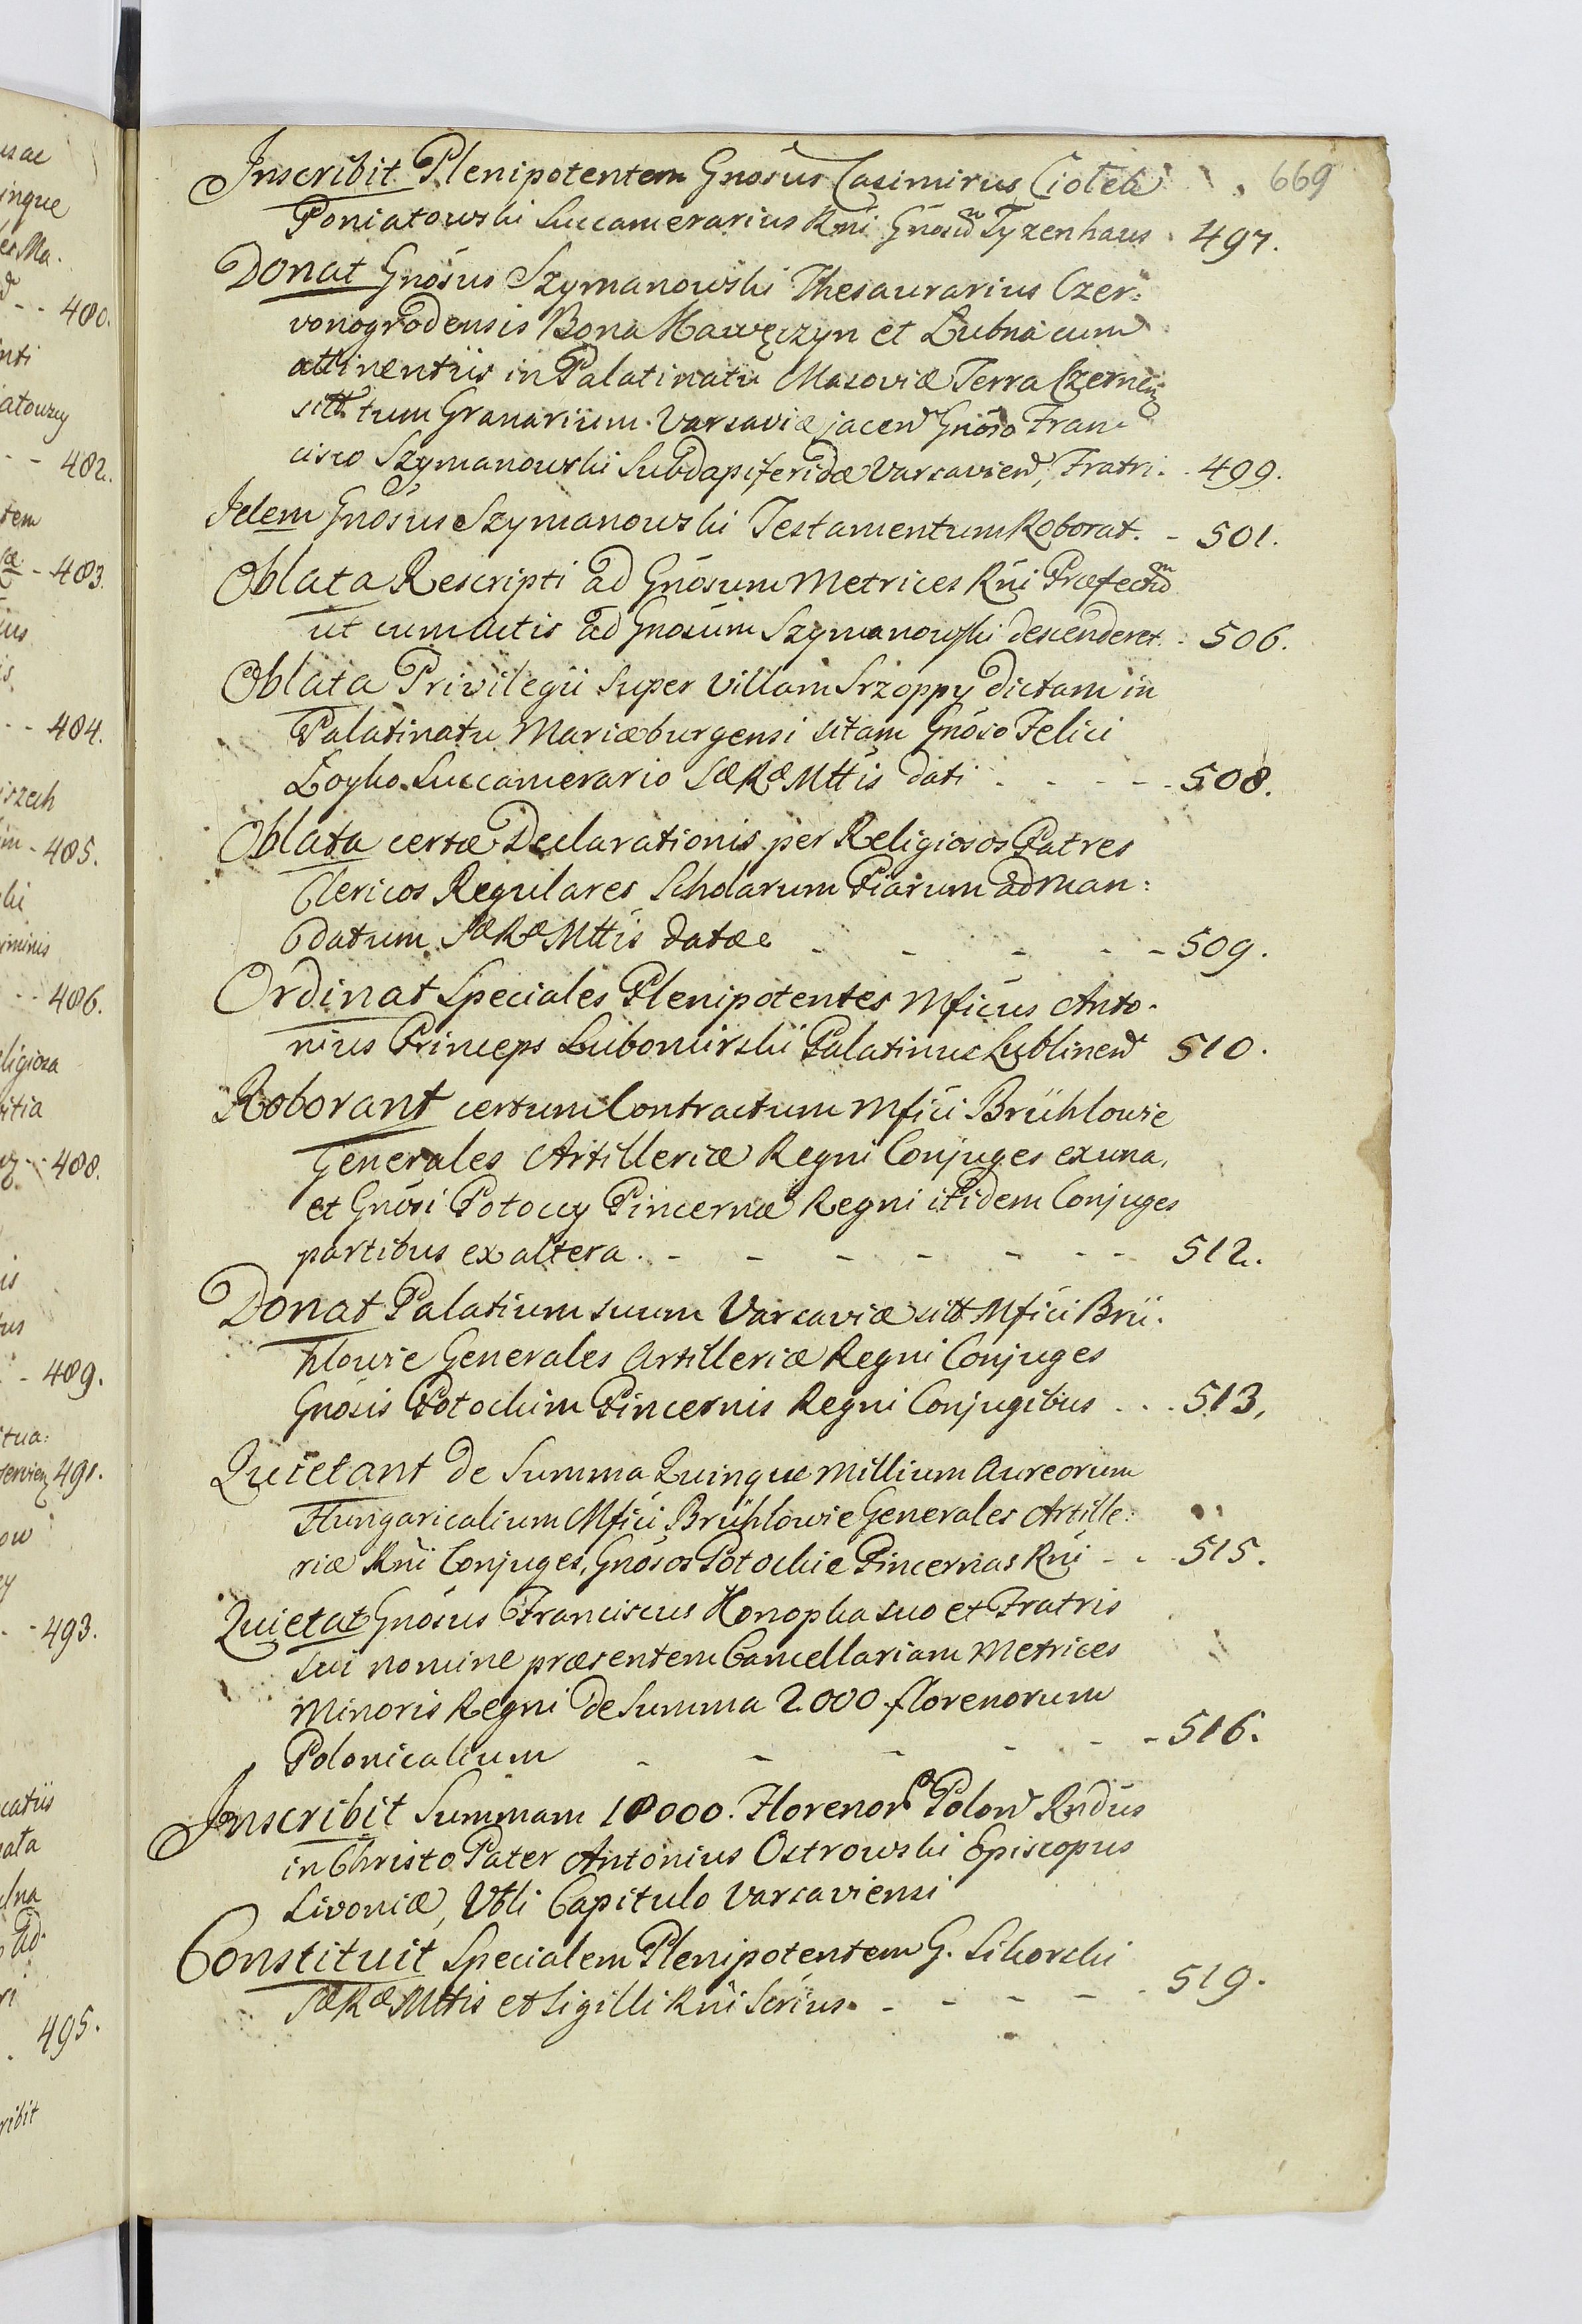 669
Inscribit Plenipotentem Gnosus Casimirus Ciołek
Poniatowski Succamerarius Rni Gnosum Tyzenhaus - 497.
Donat Gnosus Szymanowski Thesaurarius Czer:
vonogrodensis Bona Kawęczyn et Łubna cum
attinentiis in Palatinatu Masoviæ Terra Czernen
sitt. tum Granarium Varsaviæ jacen Gnoso Fran
cisco Szymanowski Subdapiferidæ Varsavien, Fratri. - 499.
Idem Gnosus Szymanowski Testamentum Roborat. - 501.
Oblata Rescripti ad Gnosum Metrices Rni Præfectum
ut cum Actis ad Gnosum Szymanowski descenderet. - 506.
Oblata Privilegii super Villam Srzoppy dictam in
Palatinatu Mariæburgensi sitam Gnoso Felici
Łoyko Succamerario Sæ Ræ Mttis dati - - - - 508.
Oblata certæ Declarationis per Religiosos Patres
Clericos Regulares Scholarum Piarum ad man:
datum Sæ Ræ Mttis datæ - - - - - 509.
Ordinat Speciales Plenipotentes Mficus Anto-
nius Princeps Lubomirski Palatinus Lublinen 510.
Roborant certum Contractum Mfici Brühlowie
Generales Artilleriæ Regni Conjuges ex una,
et Gnosi Potoccy Pincernæ Regni itidem Conjuges
partibus ex altera. - - - - - - - 512.
Donat Palatium suum Varsaviæ sitt Mfici Brü-
hlowie Generales Artilleriæ Regni Conjuges
Gnosis Potockim Pincernis Regni Conjugibus - - - 513.
Quietant de Summa Quinque Millium Aureorum
Hungaricalium Mfici Brühlowie Generales Artille:
riæ Rni Conjuges, Gnosos Potockie Pincernas Rni - - - 515.
Quietat Gnosus Franciscus Konopka suo et Fratris
sui nomine præsentem Cancellariam Metrices
Minoris Regni de Summa 2000 florenorum
Polonicalium - - - - - - 516.
Inscribit Summam 18000. Florenor Polon Rndus
in Christo Pater Antonius Ostrowski Episcopus
Livoniæ, Vbli Capitulo Varsaviensi
Constituit Specialem Plenipotentem G. Sikorski
Sæ Ræ Mttis et Sigilli Rni Scrius. - - - - - 519.